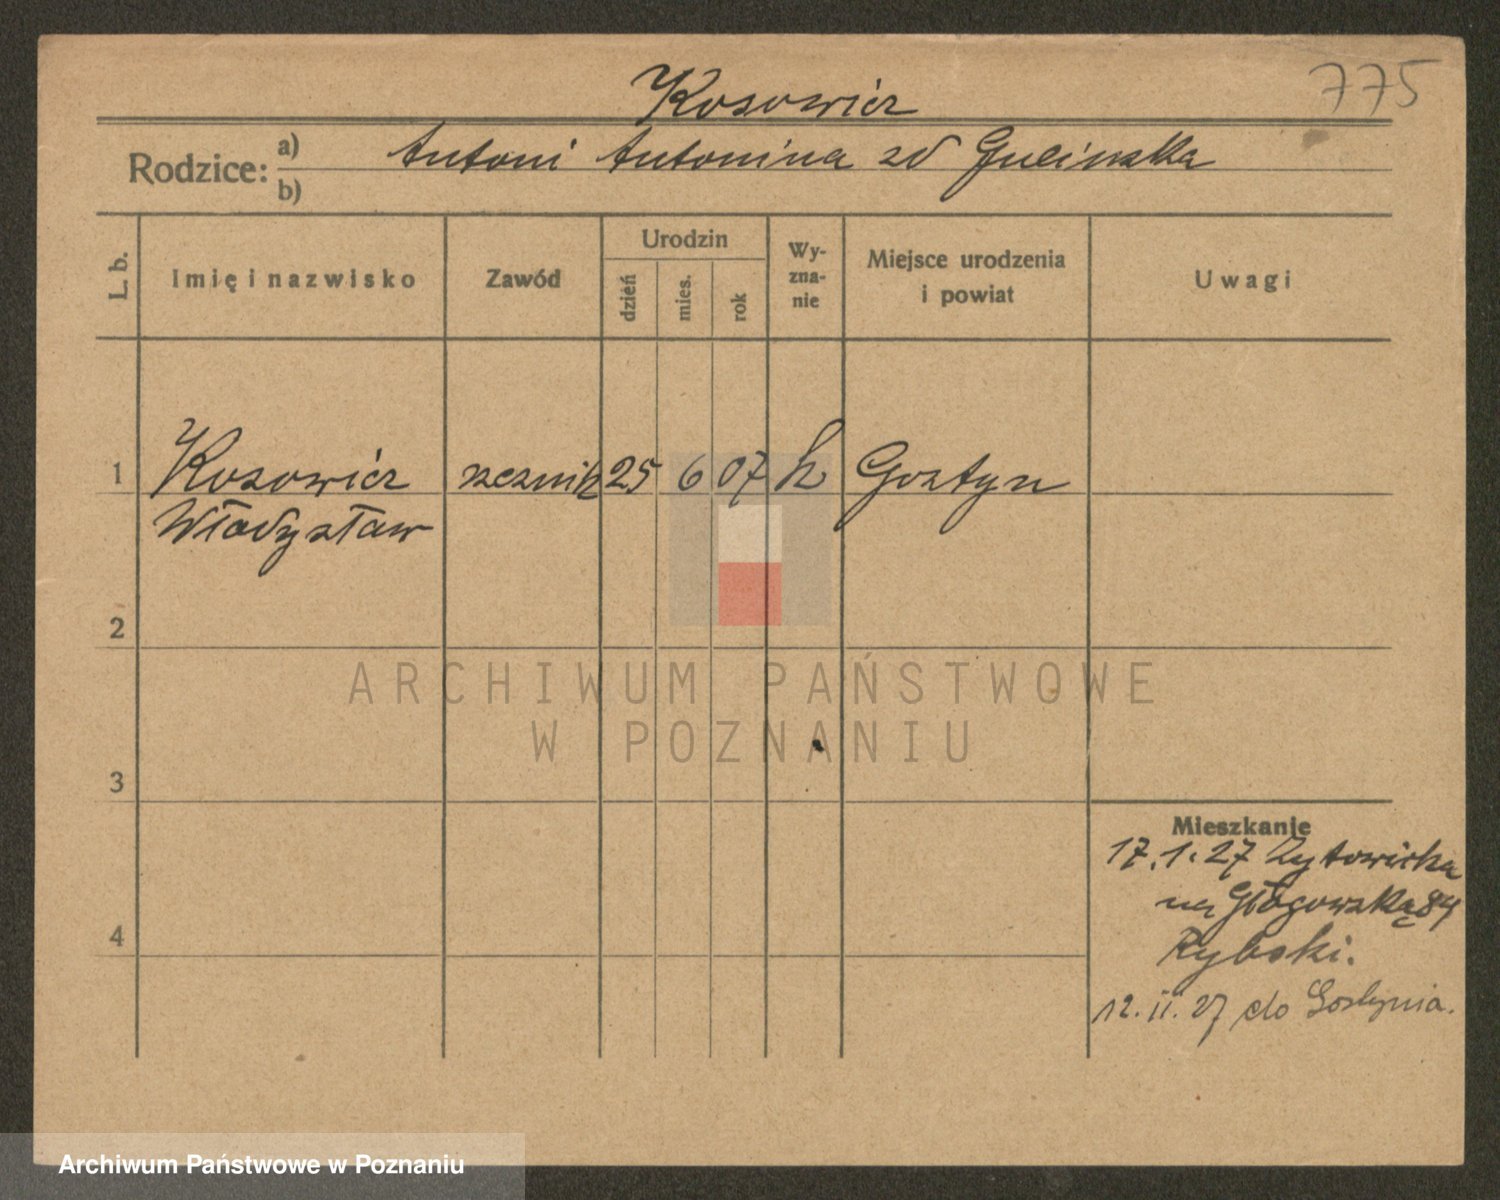 775
Kosowicz
Rodzice:
a) Antoni Antonina zd Gulinska
b)
L. b.
Imię i nazwisko
Zawód
Urodzin
dzień
mies.
rok
Wy-
zna-
nie
Miejsce urodzenia
i powiat
Uwagi
1 Kosowicz rzeznik 25 6 07 k Gostyn
Władysław
2
3
4
Mieszkanie
17.1.27
na Głogowską 84
Rybski.
12.II.27 do Gostynia.
ARCHIWUM PAŃSTWOWE
W POZNANIU
Archiwum Państwowe w Poznaniu